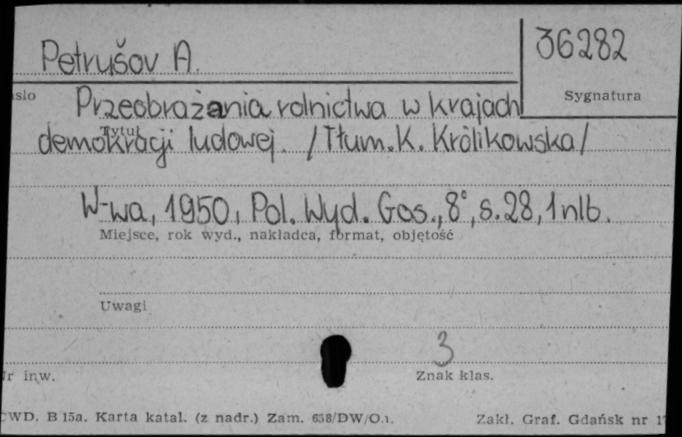 Petrušov A.
36282
Sygnatura
Przeobrażenia rolnictwa w krajach
Tytuł
demokracji ludowej. /Tłum. K. Królikowska/
W-wa, 1950, Pol. Wyd. Gos., 8°, s. 28, 1 nlb.
Miejsce, rok wyd., nakładca, format, objętość
Uwagi
3
inw.
Znak klas.
B 15a. Karta katal. (z nadr.) Zam. 658/DW/O.1.
Zakł. Graf. Gdańsk nr